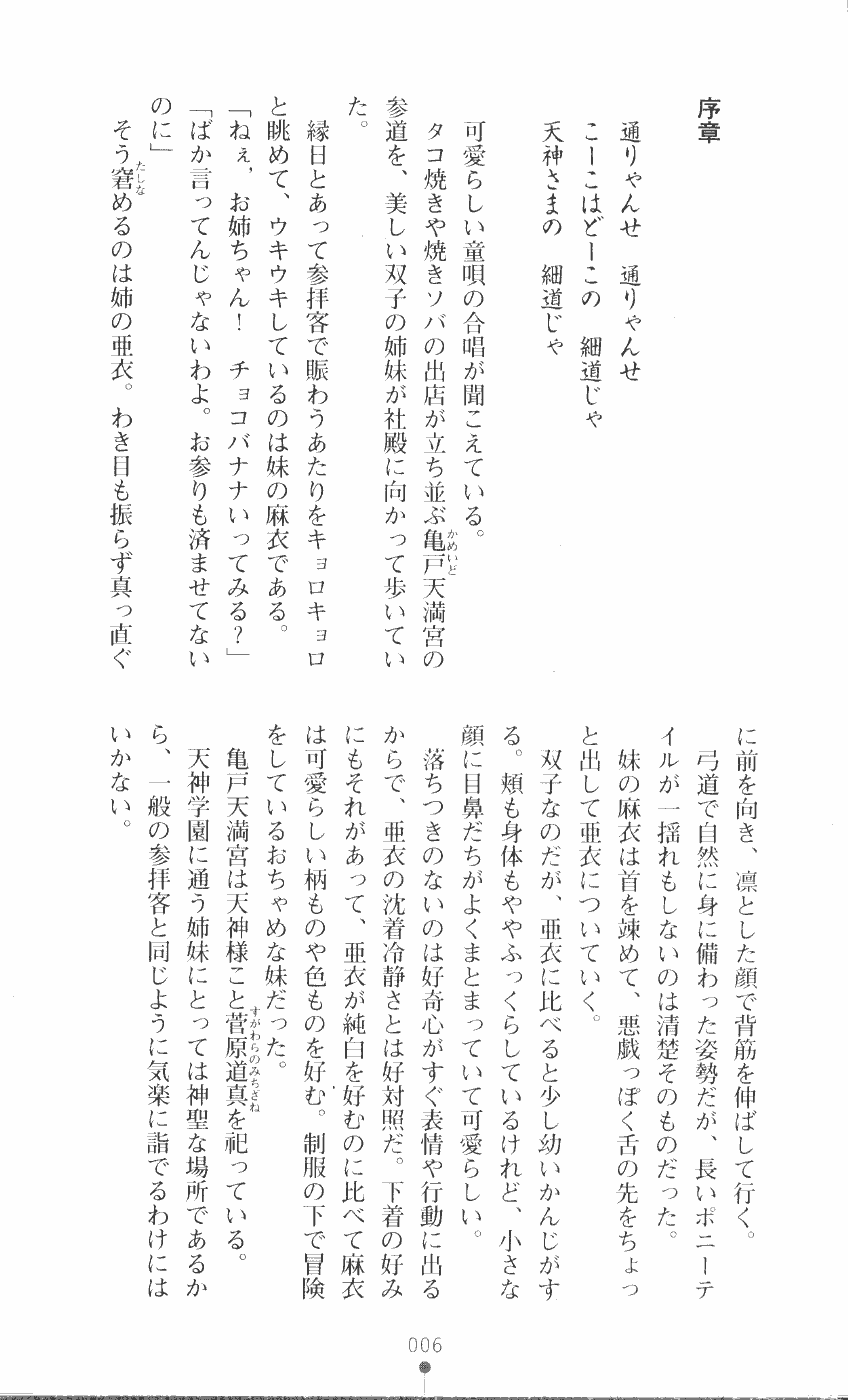 序章
通りゃんせ　通りゃんせ
こーこはどーこの　細道じゃ
天神さまの　細道じゃ
可愛らしい童唄の合唱が聞こえている。
タコ焼きや焼きソバの出店が立ち並ぶ亀戸天満宮の
かめいど
参道を、美しい双子の姉妹が社殿に向かって歩いてい
た。
縁日とあって参拝客で賑わうあたりをキョロキョロ
と眺めて、ウキウキしているのは妹の麻衣である。
「ねぇ、お姉ちゃん！　チョコバナナいってみる？」
「ばか言ってんじゃないわよ。お参りも済ませてない
のに」
そう窘めるのは姉の亜衣。わき目も振らず真っ直ぐ
たしな
に前を向き、凛とした顔で背筋を伸ばして行く。
弓道で自然に身に備わった姿勢だが、長いポニーテ
イルが一揺れもしないのは清楚そのものだった。
妹の麻衣は首を竦めて、悪戯っぽく舌の先をちょっ
と出して亜衣についていく。
双子なのだが、亜衣に比べると少し幼いかんじがす
る。頬も身体もややふっくらしているけれど、小さな
顔に目鼻だちがよくまとまっていて可愛らしい。
落ちつきのないのは好奇心がすぐ表情や行動に出る
からで、亜衣の沈着冷静さとは好対照だ。下着の好み
にもそれがあって、亜衣が純白を好むのに比べて麻衣
は可愛らしい柄ものや色ものを好む。制服の下で冒険
をしているおちゃめな妹だった。
亀戸天満宮は天神様こと菅原道真を祀っている。
すがわらのみちざね
天神学園に通う姉妹にとっては神聖な場所であるか
ら、一般の参拝客と同じように気楽に詣でるわけには
いかない。
006